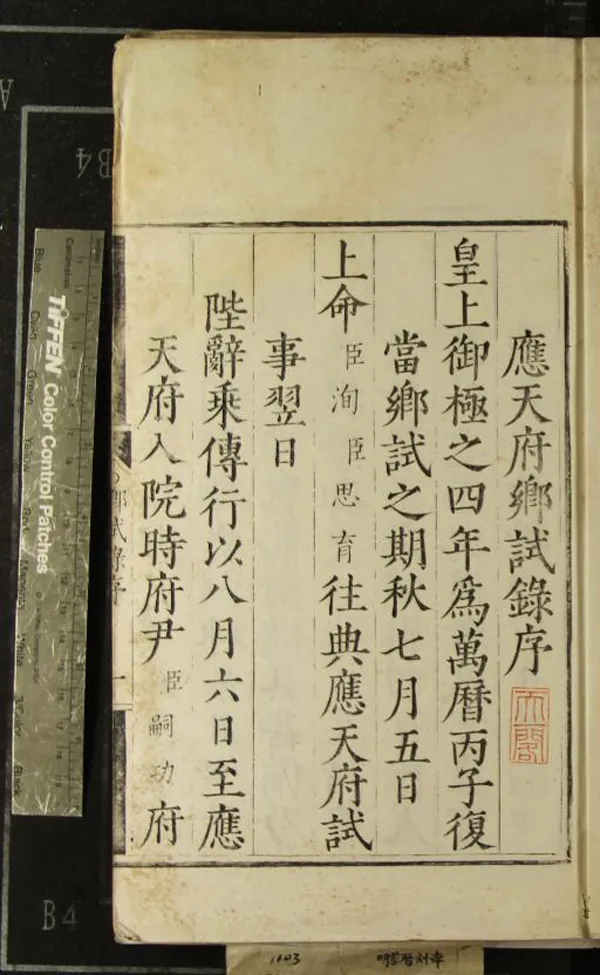 應天府鄉試錄序
天閣
皇上御極之四年爲萬曆丙子復
當鄉試之期秋七月五日
上命臣洵臣思育往典應天府試
事翌日
陛辭乘傳行以八月六日至應
天府入院時府尹臣嗣功府
鄉試錄序
一
TIFFEN Color Control Patches
Blue
Cyan
Green
Yellow
Red
Magenta
White
3/Color
Black
B4
B4
A
1103